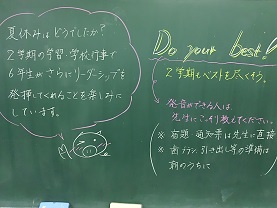 夏休みはどうでしたか?
2学期の学習・学校行事で
6年生がさらにリーダーシップを
発揮してくれることを楽しみに
しています。
Do your best!
2学期もベストを尽くそう。
発言ができる人は
先生にこっそり教えてください。
※ 宿題、通知表は先生に直接
※ 引き出し等の準備は
朝のうちに